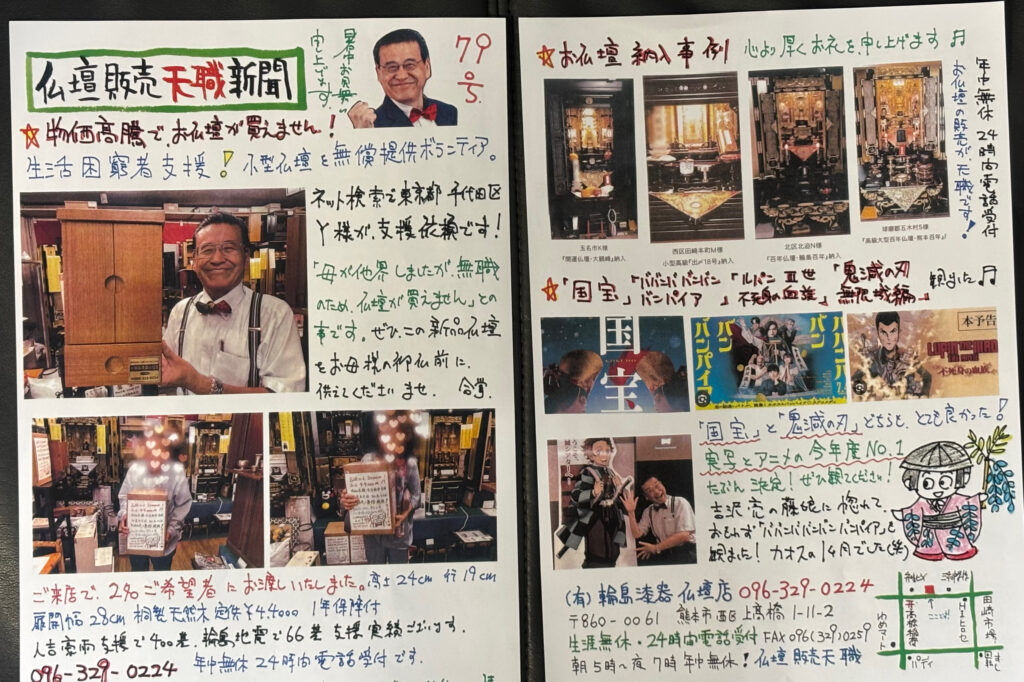 仏壇販売天職新聞
暑中お見舞
申し上げます。
79
号
☆物価高騰でお仏壇が買えません!
生活困窮者支援!小型仏壇を無償提供ボランティア。
ネット検索で東京都千代田区
Y様が、支援依頼です!
「母が他界しましたが、無職
のため、仏壇が買えません」との
事です。ぜひ、この新品仏壇
をお母様の御仏前に、
供えてくださいませ。合掌
ご来店で、2名ご希望者にお渡しいたしました。高さ24cm 行19cm
扉開幅28cm 桐製天然木 定価¥44000 1年保障付
人吉豪雨支援で400基、輪島地震で66基 支援実績ございます。
096-329-0224 年中無休24時間電話受付です。
☆お仏壇納入事例 心より厚くお礼を申し上げます♬
年中無休 24時間電話受付
お仏壇の販売が、天職です!
玉名市K様
『開運仏壇・大鶴峰』納入
西区田崎本町M様
小型高級『出〆18号』納入
北区北迫N様
『百年仏壇・輪島百年』納入
球磨郡五木村S様
『高級大型百年仏壇・熊本百年』納入
☆「国宝」「ババンババンバン バンパイア」「ルパンⅢ世 不死身の血族」「鬼滅の刃 無限城編」観ました♬
国宝
ババンババンバンバンパイア
本予告
LUPIN THE IIIRD
"不死身の血族"
「国宝」と「鬼滅の刃」どちらも、とても良かった!
実写とアニメの今年度NO.1
たぶん決定!ぜひ観てください!
吉沢亮の藤娘に惚れて、
おもわず「ババンババンバンバンパイア」も
観ました!カオスの1ヶ月でした(笑)
(有)輪島漆器仏壇店 096-329-0224
〒860-0061 熊本市西区上高橋1-11-2
生涯無休・24時間電話受付 FAX096(329)0259
朝5時〜夜7時 年中無休!仏壇販売天職
ゆめマート
高橋稲荷
ここ
パディ
田崎市場